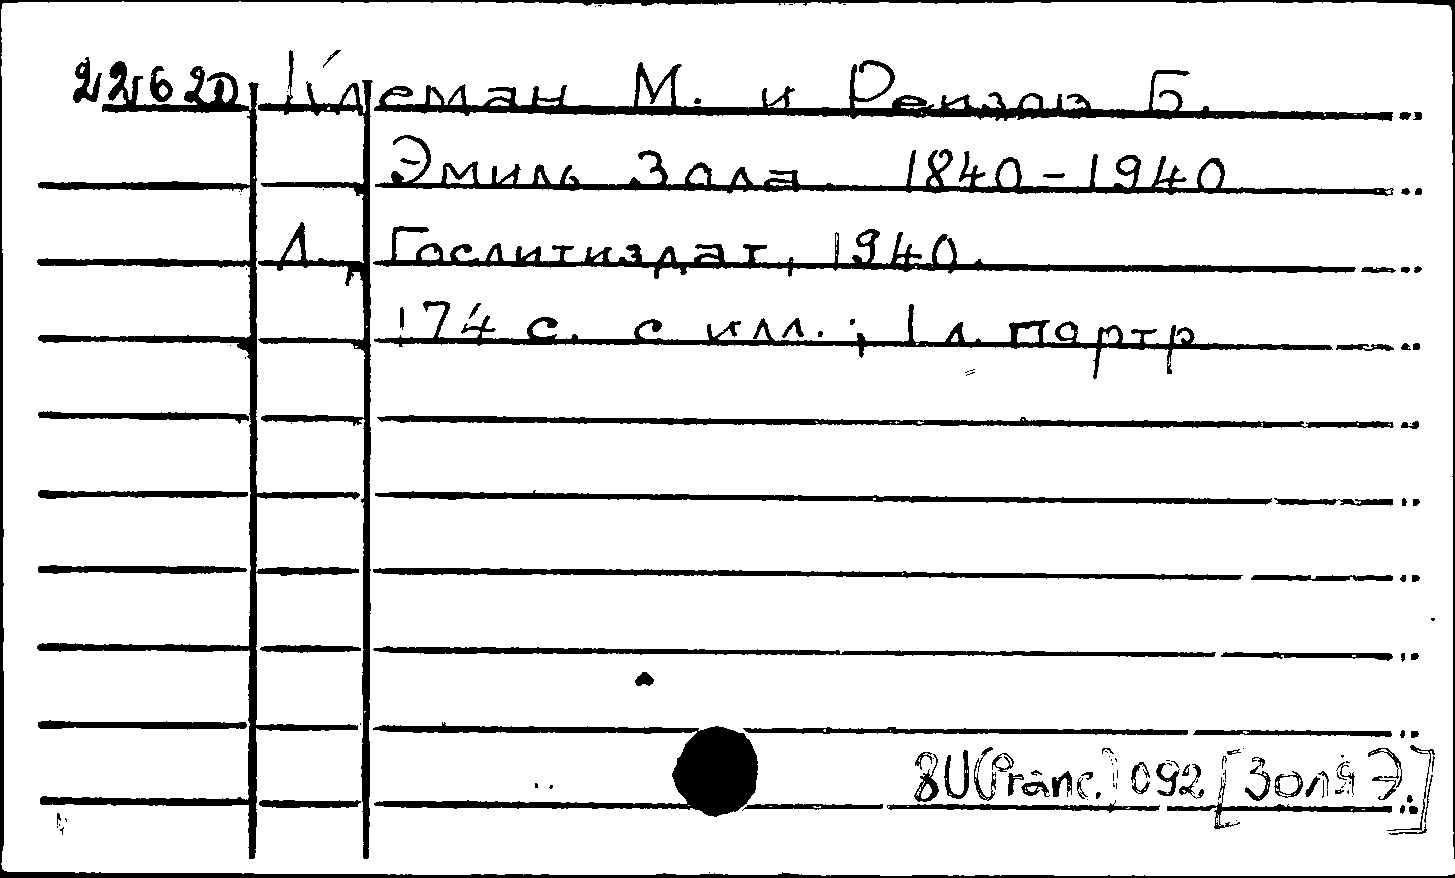 22620 Клеман М. и Реизов Б.
Эмиль Золя 1840-1940
Л., Гослитиздат, 1940.
174 с. с илл.; 1 л. портр
8И(Франц.)092 [Золя Э.]